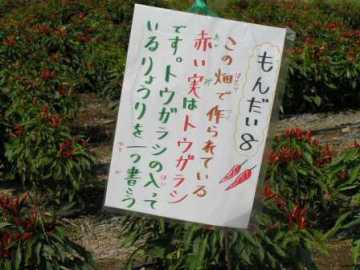 もんだい8
この畑で作られている
赤い実はトウガラシ
です。トウガラシの入って
いるりょうりを一つ書こう